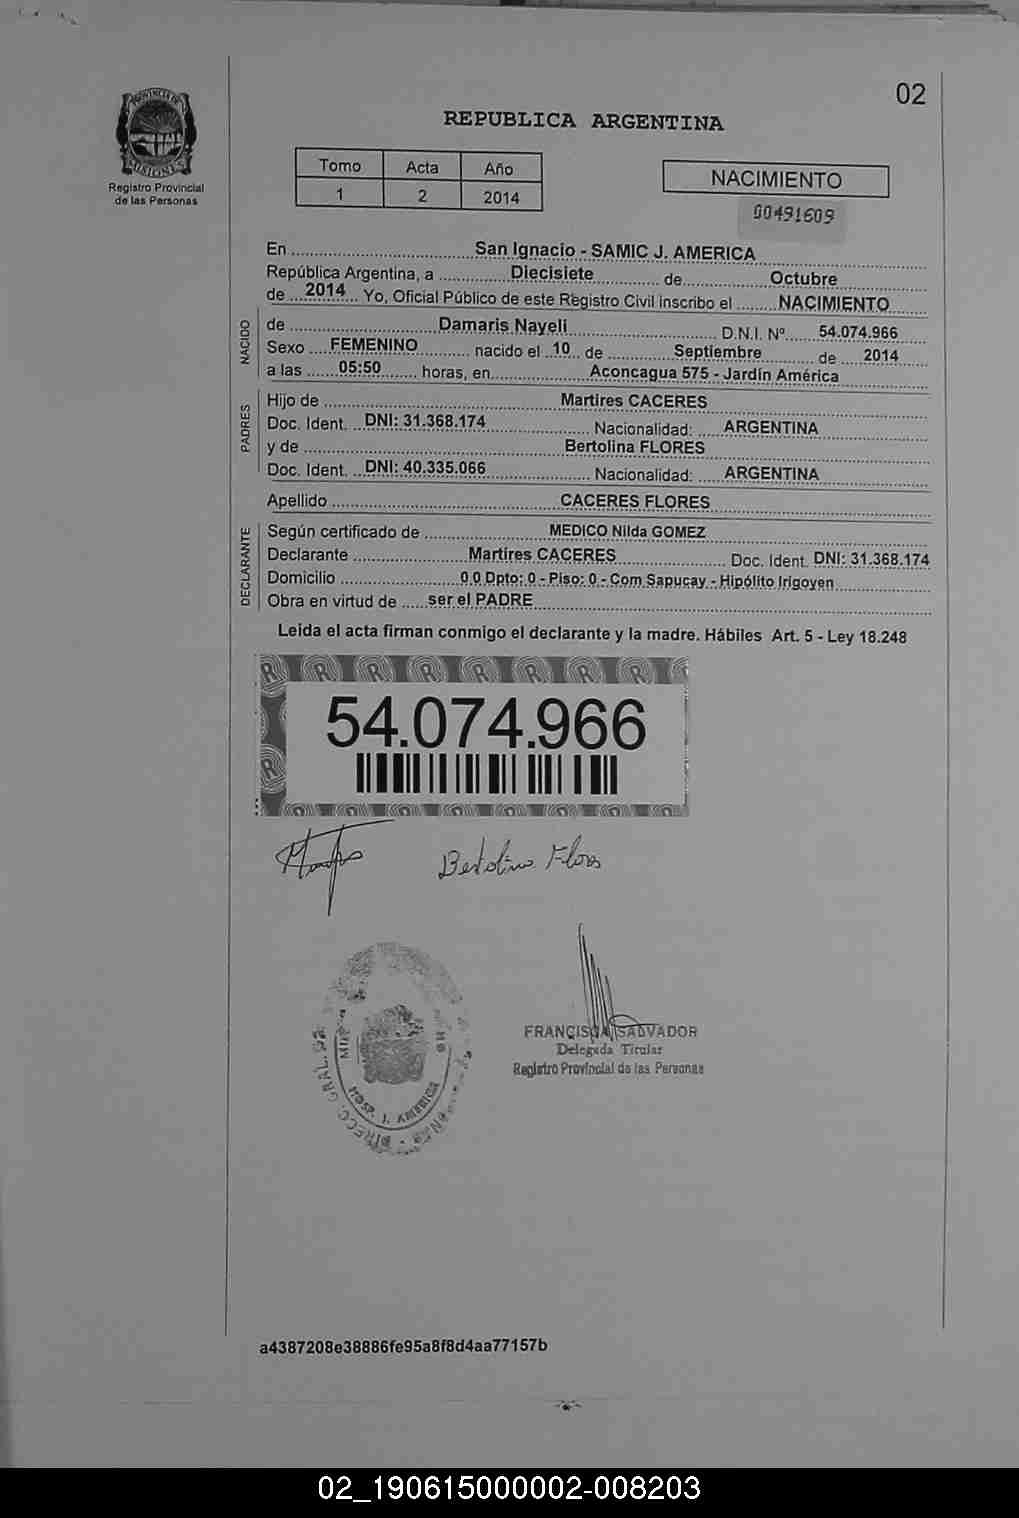 02
REPUBLICA ARGENTINA
PROVINCIA DE MISIONES
Registro Provincial
de las Personas
Tomo Acta Año
1 2 2014
NACIMIENTO
00491609
En San Ignacio - SAMIC J. AMERICA
República Argentina, a Diecisiete de Octubre
de 2014 Yo, Oficial Público de este Registro Civil inscribo el NACIMIENTO
NACIDO
de Damaris Nayeli D.N.I. Nº 54.074.966
Sexo FEMENINO nacido el 10 de Septiembre de 2014
a las 05:50 horas, en Aconcagua 575 - Jardín América
PADRES
Hijo de Martires CACERES
Doc. Ident. DNI: 31.368.174 Nacionalidad: ARGENTINA
y de Bertolina FLORES
Doc. Ident. DNI: 40.335.066 Nacionalidad: ARGENTINA
Apellido CACERES FLORES
DECLARANTE
Según certificado de MEDICO Nilda GOMEZ
Declarante Martires CACERES Doc. Ident. DNI: 31.368.174
Domicilio 0 0 Dpto: 0 - Piso: 0 - Com Sapucay - Hipólito Irigoyen
Obra en virtud de ser el PADRE
Leida el acta firman conmigo el declarante y la madre. Hábiles Art. 5 - Ley 18.248
54.074.966
Bertolina Flores
DIRECC. GRAL. DE
HOSP. J. AMERICA
FRANCISCA SALVADOR
Delegada Titular
Registro Provincial de las Personas
a4387208e38886fe95a8f8d4aa77157b
02_190615000002-008203